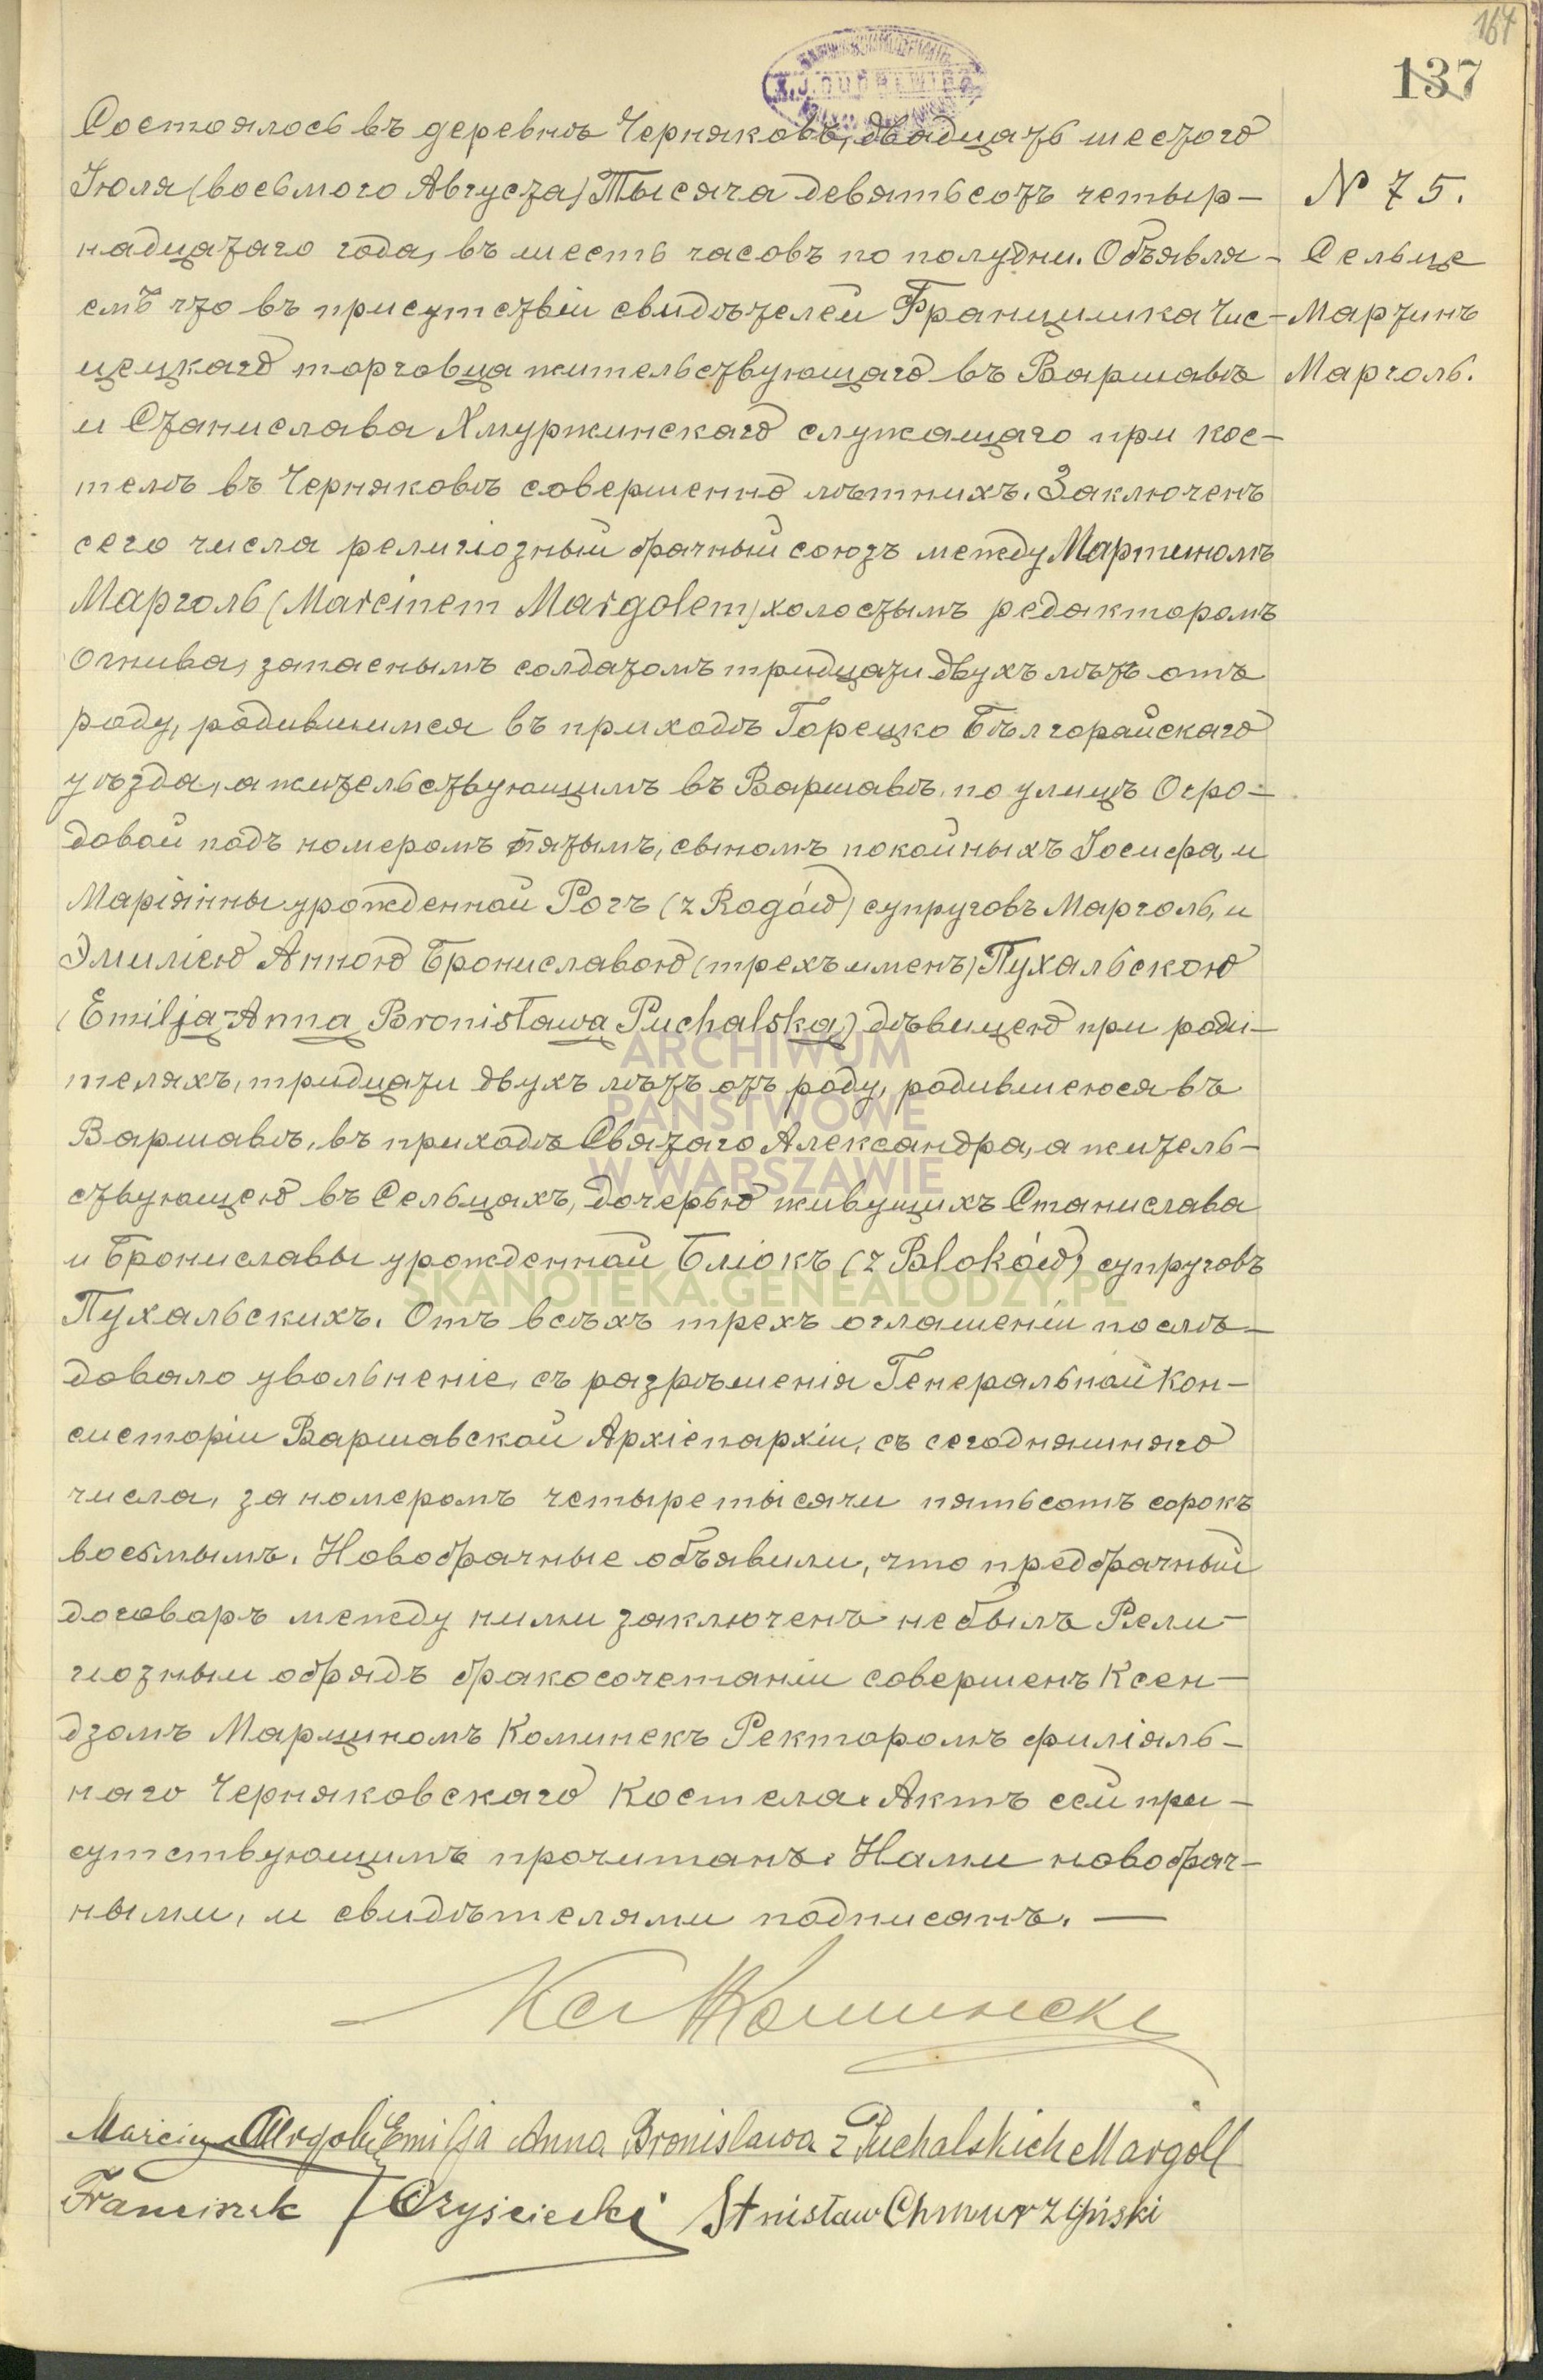 164
137
Состоялось въ деревнѣ Черняковѣ, двадцать шестого
Іюля (восьмого Августа) Тысяча девятьсотъ четыр-
надцатаго года, въ шесть часовъ по полудни. Объявля-
емъ что въ присутствіи свидѣтелей Францишка Чис-
цецкаго торговца жительствующаго въ Варшавѣ
и Станислава Хмуржинскаго служащаго при кос-
телѣ въ Черняковѣ совершенно лѣтнихъ. Заключенъ
сего числа религіозный брачный союзъ между Мартиномъ
Марголь (Marcinem Margolem) холостымъ редакторомъ
Огнива, запаснымъ солдатомъ тридцати двухъ лѣтъ отъ
роду, родившимся въ приходѣ Горецко Бѣлгорайскаго
уѣзда, а жительствующимъ въ Варшавѣ, по улицѣ Огро-
довой подъ номеромъ пятымъ, сыномъ покойныхъ Іосифа, и
Маріянны урожденной Рогъ (z Rogów) супруговъ Марголь, и
Эмиліею Анною Брониславою (трехъ именъ) Пухальскою
(Emilja Anna Bronisława Puchalska) дѣвицею при роди-
теляхъ, тридцати двухъ лѣтъ отъ роду, родившеюся въ
Варшавѣ, въ приходѣ Святаго Александра, а житель-
ствующею въ Сельцахъ, дочерью живущихъ Станислава
и Брониславы урожденной Бліокъ (z Bloków) супруговъ
Пухальскихъ. Отъ всѣхъ трехъ оглашеніи послѣ-
довало увольненіе, съ разрѣшенія Генеральной Кон-
систоріи Варшавской Архіепархіи, съ сегодняшняго
числа, за номеромъ четыре тысячи пятьсотъ сорокъ
восьмымъ. Новобрачные объявили, что предбрачный
договаръ между ними заключенъ не былъ Рели-
гиозный обрядъ бракосочетаніи совершенъ Ксен-
дзомъ Марциномъ Коминекъ Ректоромъ филіяль-
наго Черняковскаго Костела. Актъ сей при-
сутствующимъ прочитанъ. Нами новобрач-
ными, и свидѣтелями подписанъ. —
№ 75.
Сельце
Мартинъ
Марголь.
Marcin Margol Emilja Anna Bronislawa z Puchalskich Margoll
Franciszek Czyściecki Stnisław Chmurzyński
ARCHIWUM
PAŃSTWOWE
W WARSZAWIE
SKANOTEKA.GENEALODZY.PL